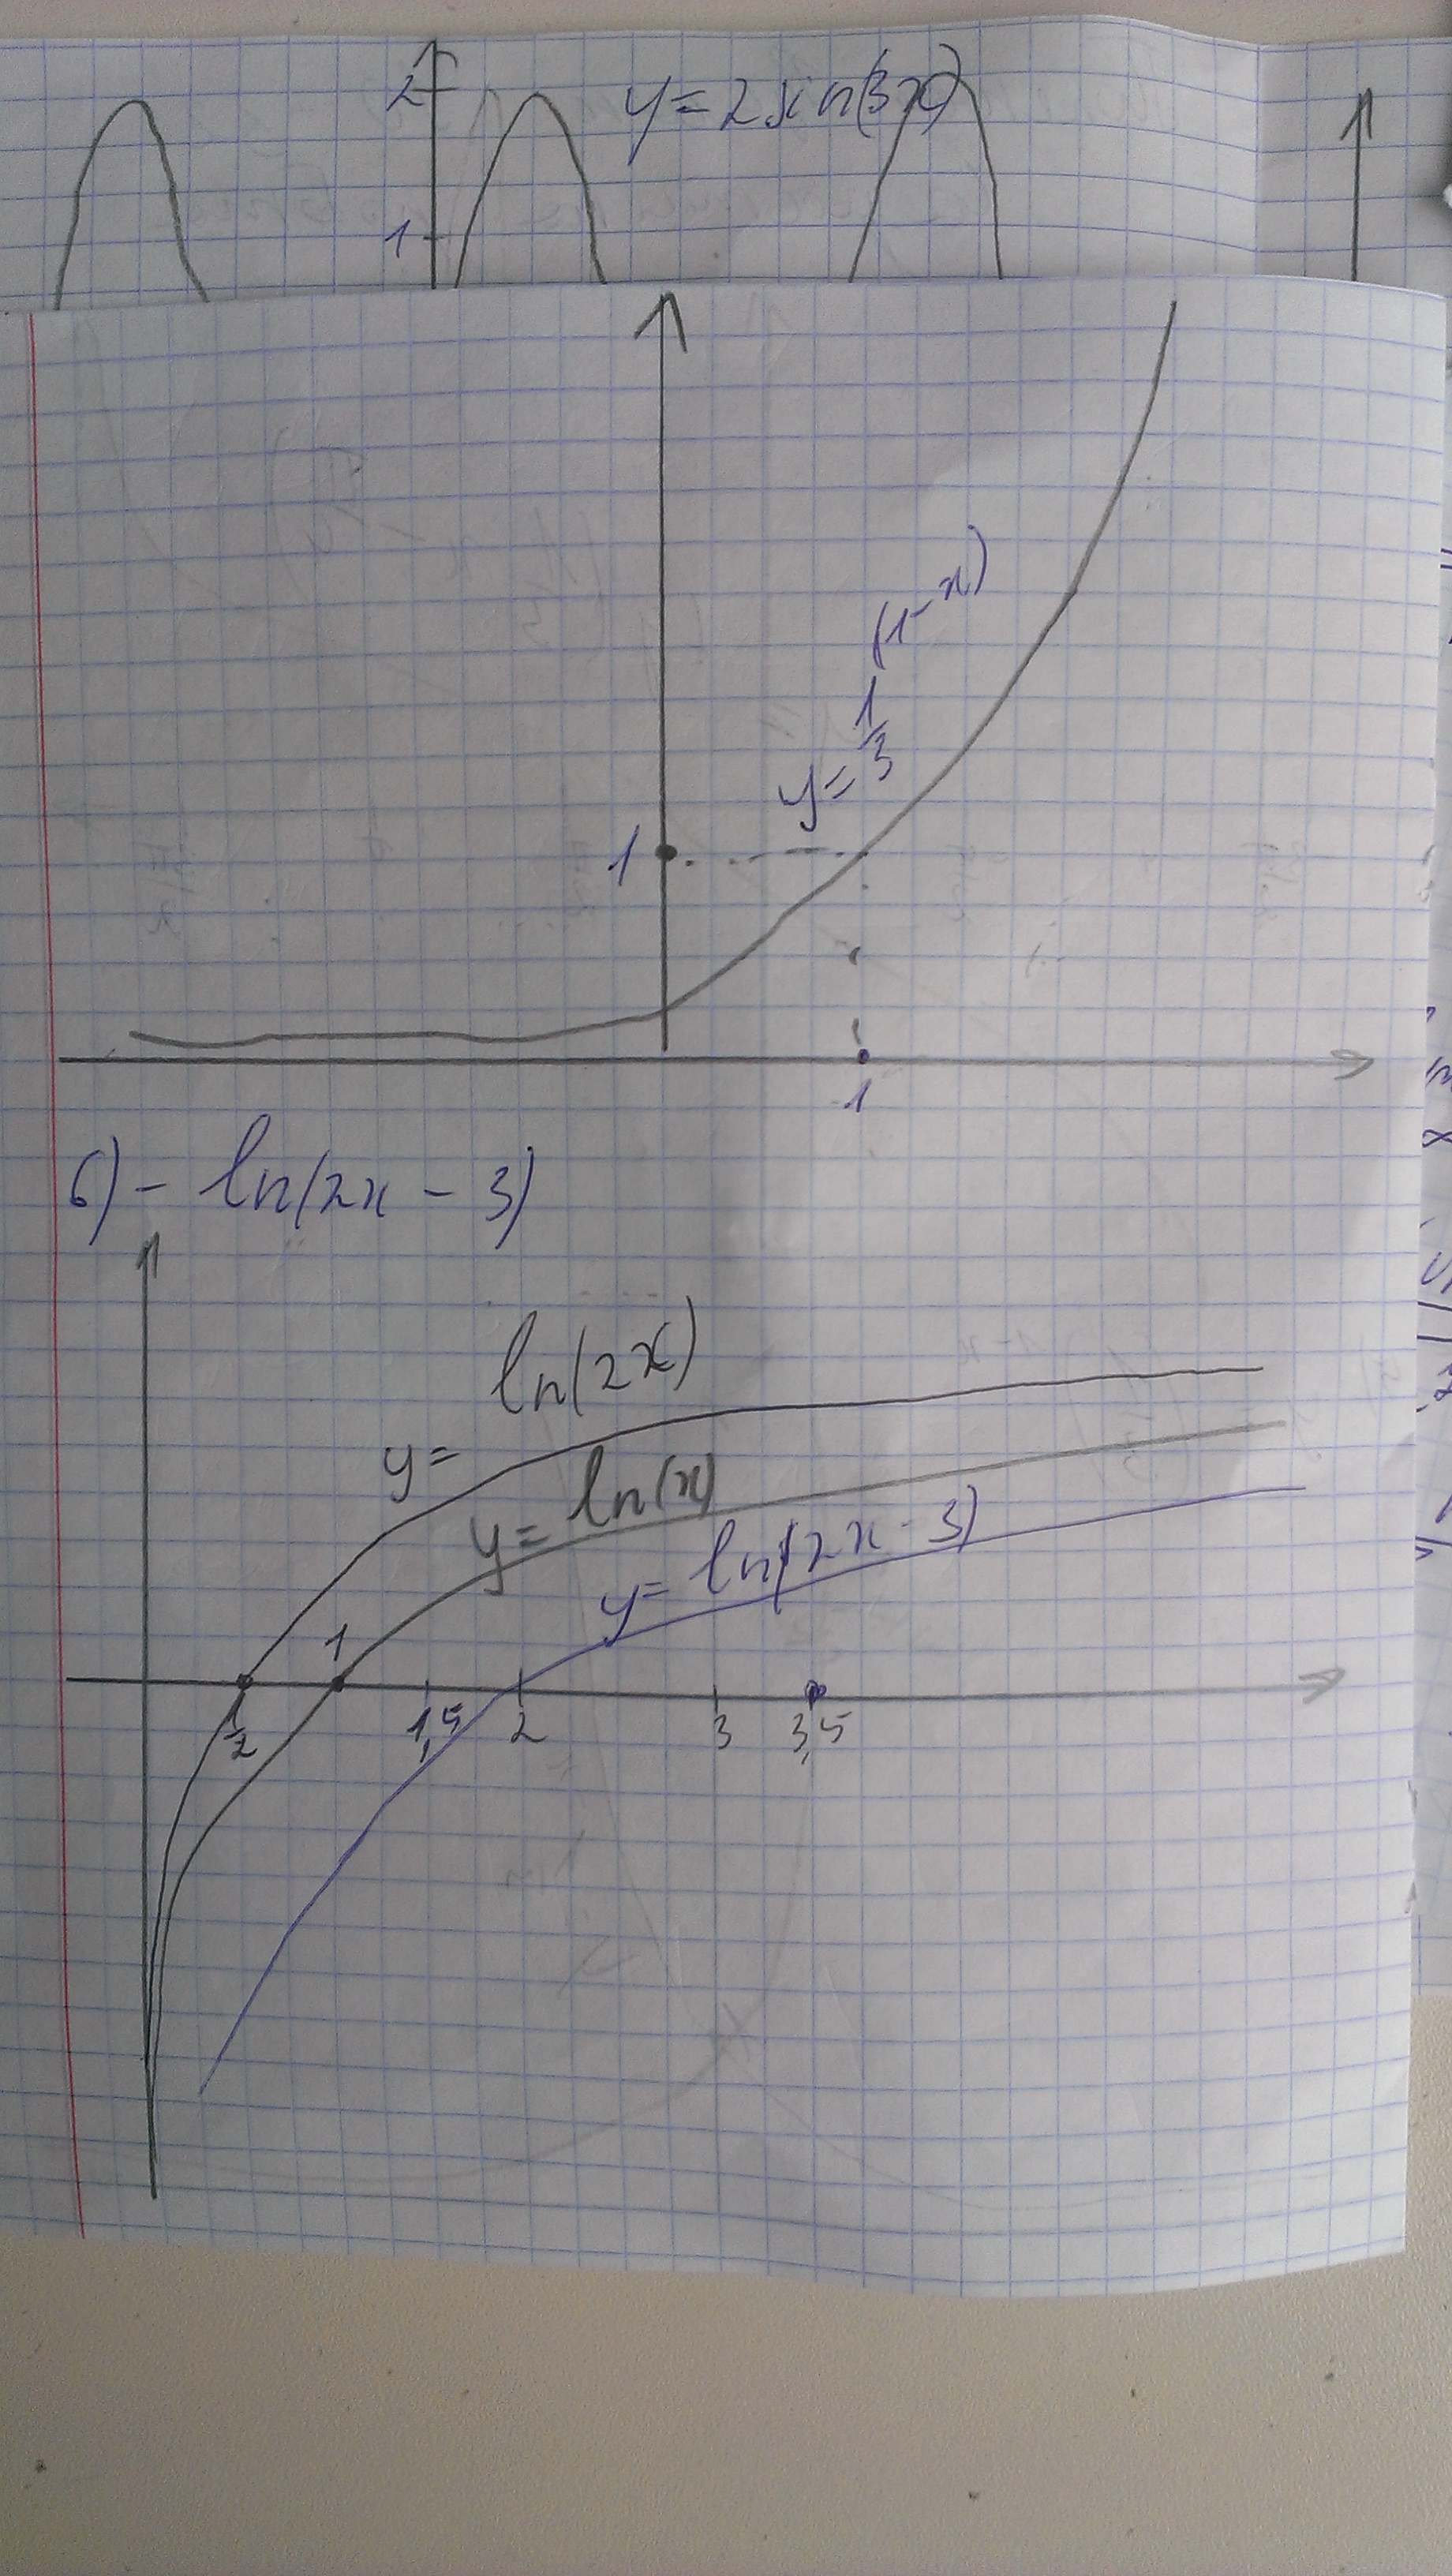 2
y=2sin(3x)
1
y=1/3^(1-x)
1
1
6) - ln(2x - 3)
y= ln(2x)
y= ln(x)
y= ln(2x-3)
1
1/2 1,5 2 3 3,5